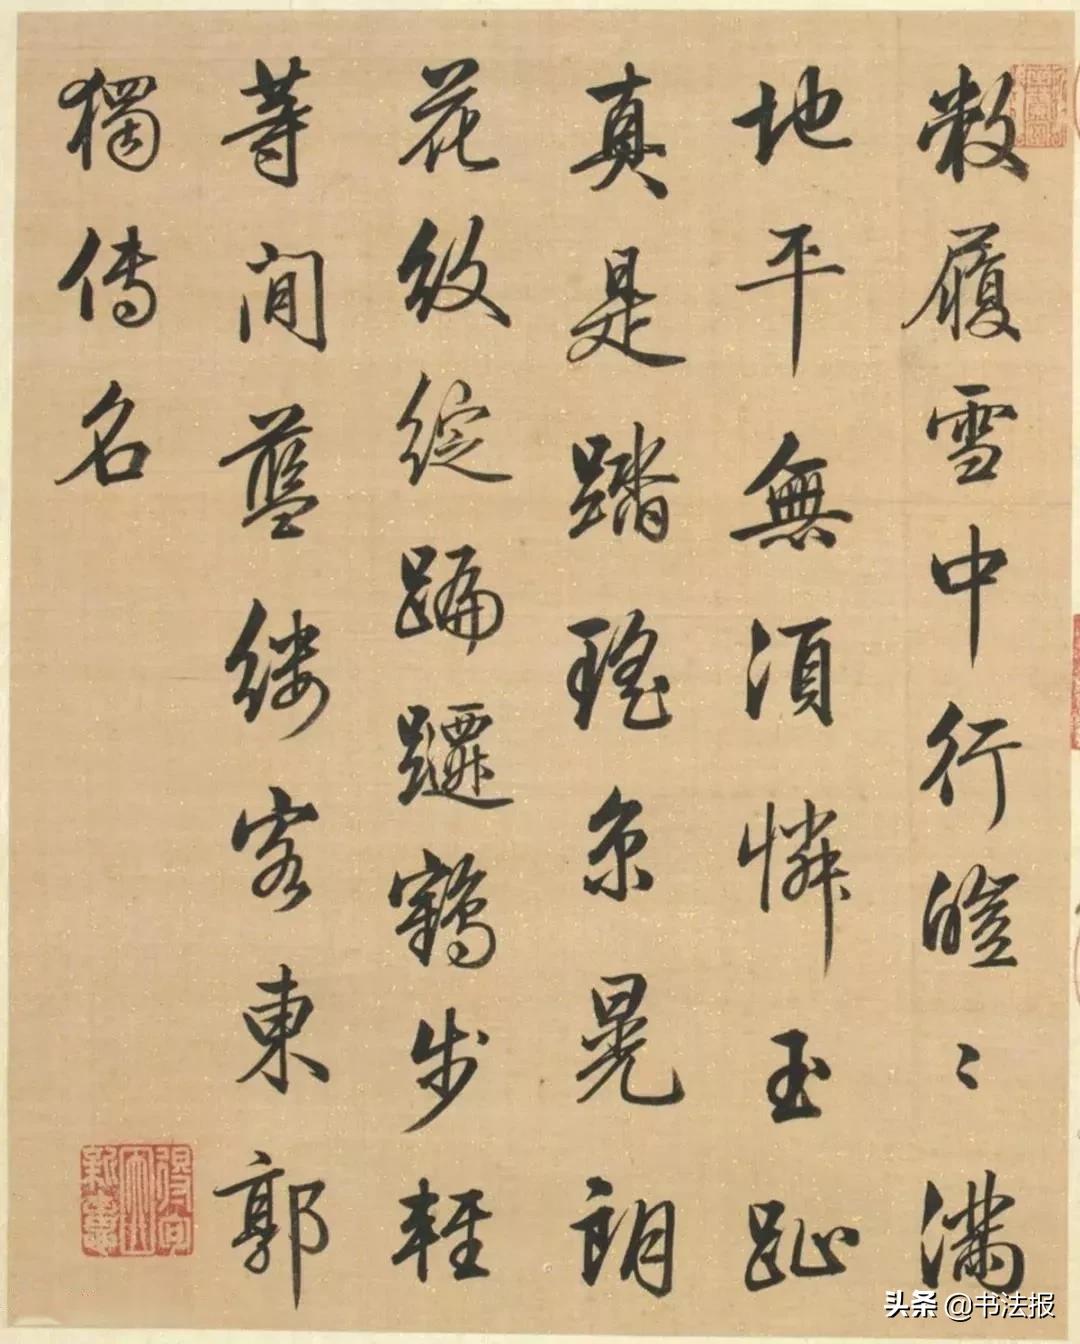 敝履雪中行皚〻滿
地平無須憐玉趾
真是踏瑤京晃朗
花紋綻蹁躚鶴步輕
等間藍縷客東郭
獨傳名
头条 @书法报